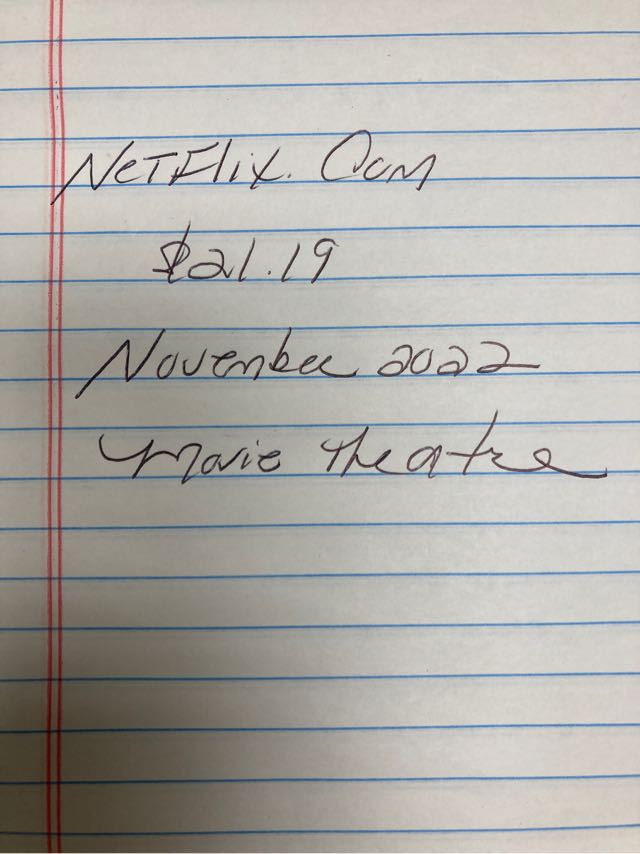 NETFlix. Com
$21.19
November 2022
Movie theatre